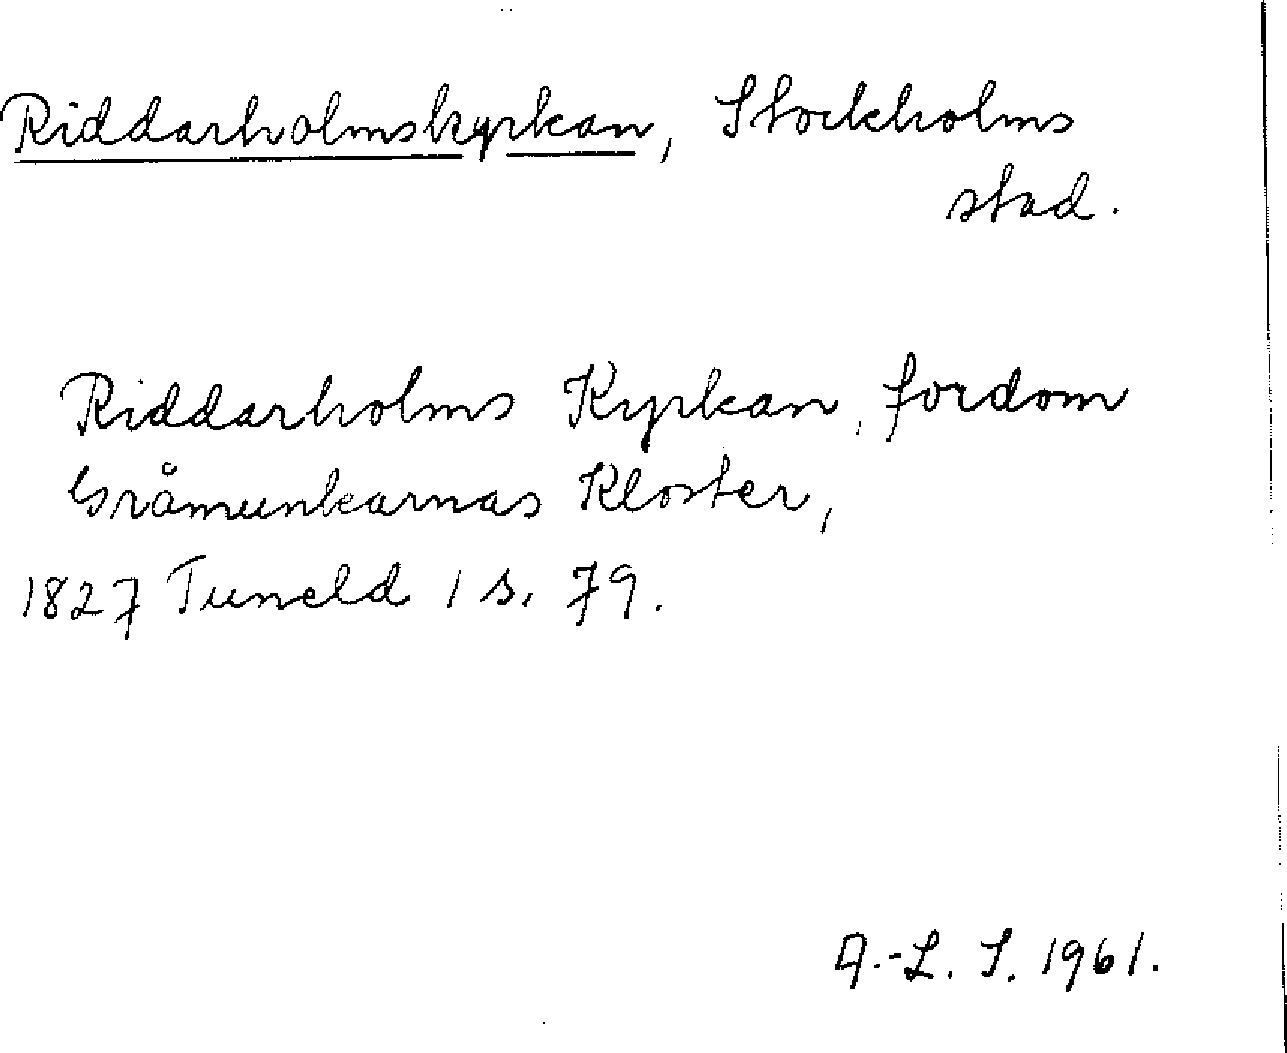 Riddarholmskyrkan, Stockholms
stad.
Riddarholms Kyrkan, fordom
Gråmunkarnas Kloster,
1827 Tuneld 1 s. 79.
A.-L. S. 1961.